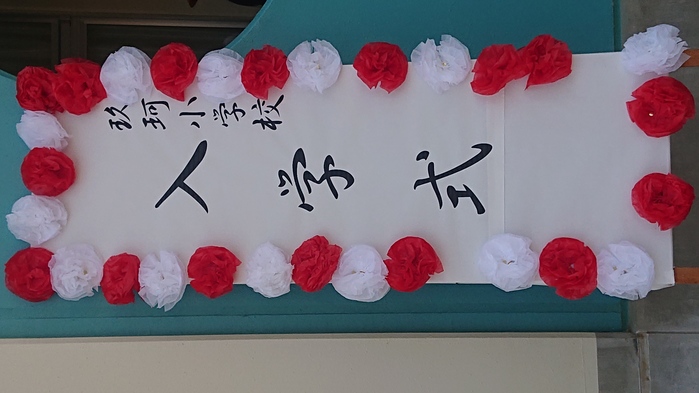 玖珂小学校
入学式